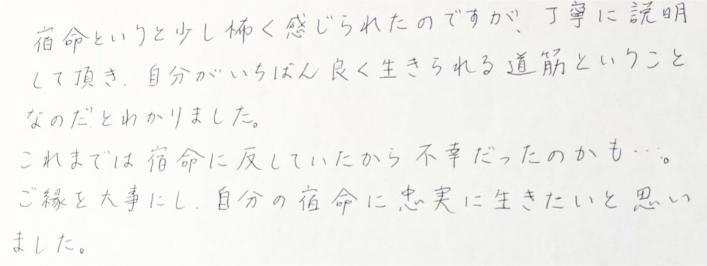 宿命というと少し怖く感じられたのですが、丁寧に説明
して頂き、自分がいちばん良く生きられる道筋ということ
なのだとわかりました。
これまでは宿命に反していたから不幸だったのかも…。
ご縁を大事にし、自分の宿命に忠実に生きたいと思い
ました。